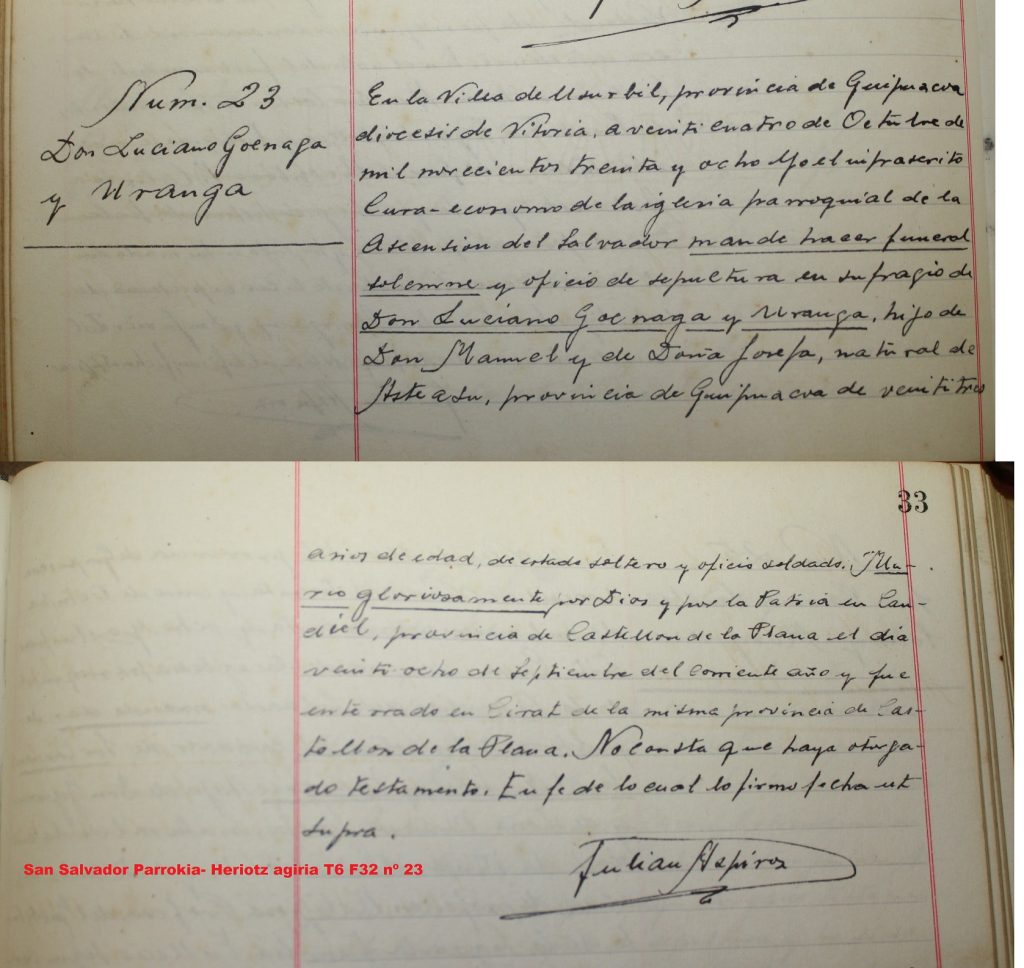 Num. 23
Don Luciano Goenaga
y Uranga
En la Villa de Usurbil, provincia de Guipuzcoa
diocesis de Vitoria, a veinti cuatro de Octubre de
mil novecientos treinta y ocho Yo el infrascrito
Cura-economo de la iglesia parroquial de la
Ascension del Salvador mande hacer funeral
solemne y oficio de sepultura en sufragio de
Don Luciano Goenaga y Uranga, hijo de
Don Manuel y de Doña Josefa, natural de
Asteasu, provincia de Guipuzcoa de veintitres
33
años de edad, de estado soltero y oficio soldado. Mu-
rio gloriosamente por Dios y por la Patria en Cau-
diel, provincia de Castellon de la Plana el dia
veinti ocho de Septiembre del corriente año y fue
enterrado en Cirat de la misma provincia de Cas-
tellon de la Plana. No consta que haya otorga-
do testamento. En fe de lo cual lo firmo fecha ut
supra.
Julian Aspiroz
San Salvador Parrokia- Heriotz agiria T6 F32 nº 23